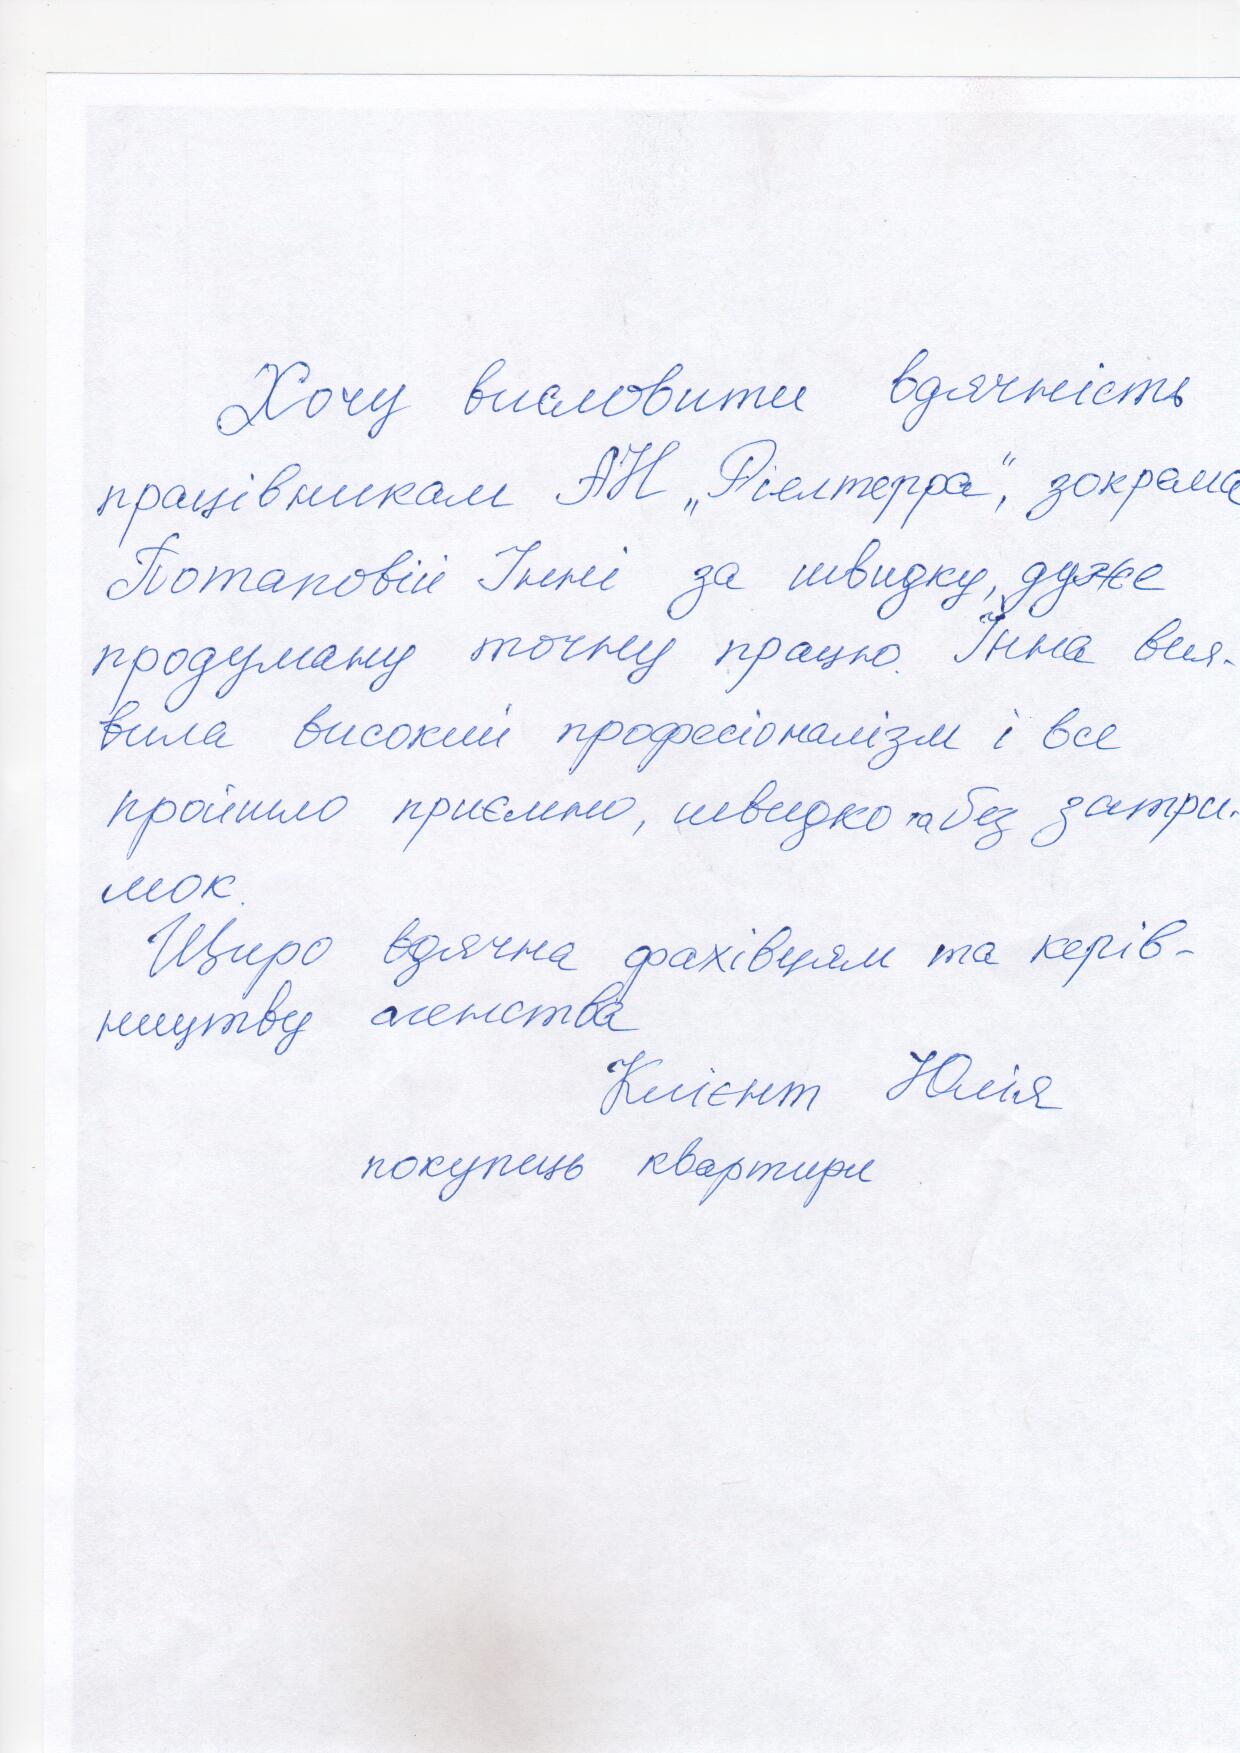 Хочу висловити вдячність
працівникам АН „Рієлтерра“, зокрема
Потаповій Інні за швидку, дуже
продуману точну працю. Інна вия-
вила високий професіоналізм і все
пройшло приємно, швидко та без затри-
мок.
Щиро вдячна фахівцям та керів-
ництву агенства
Клієнт Юлія
покупець квартири